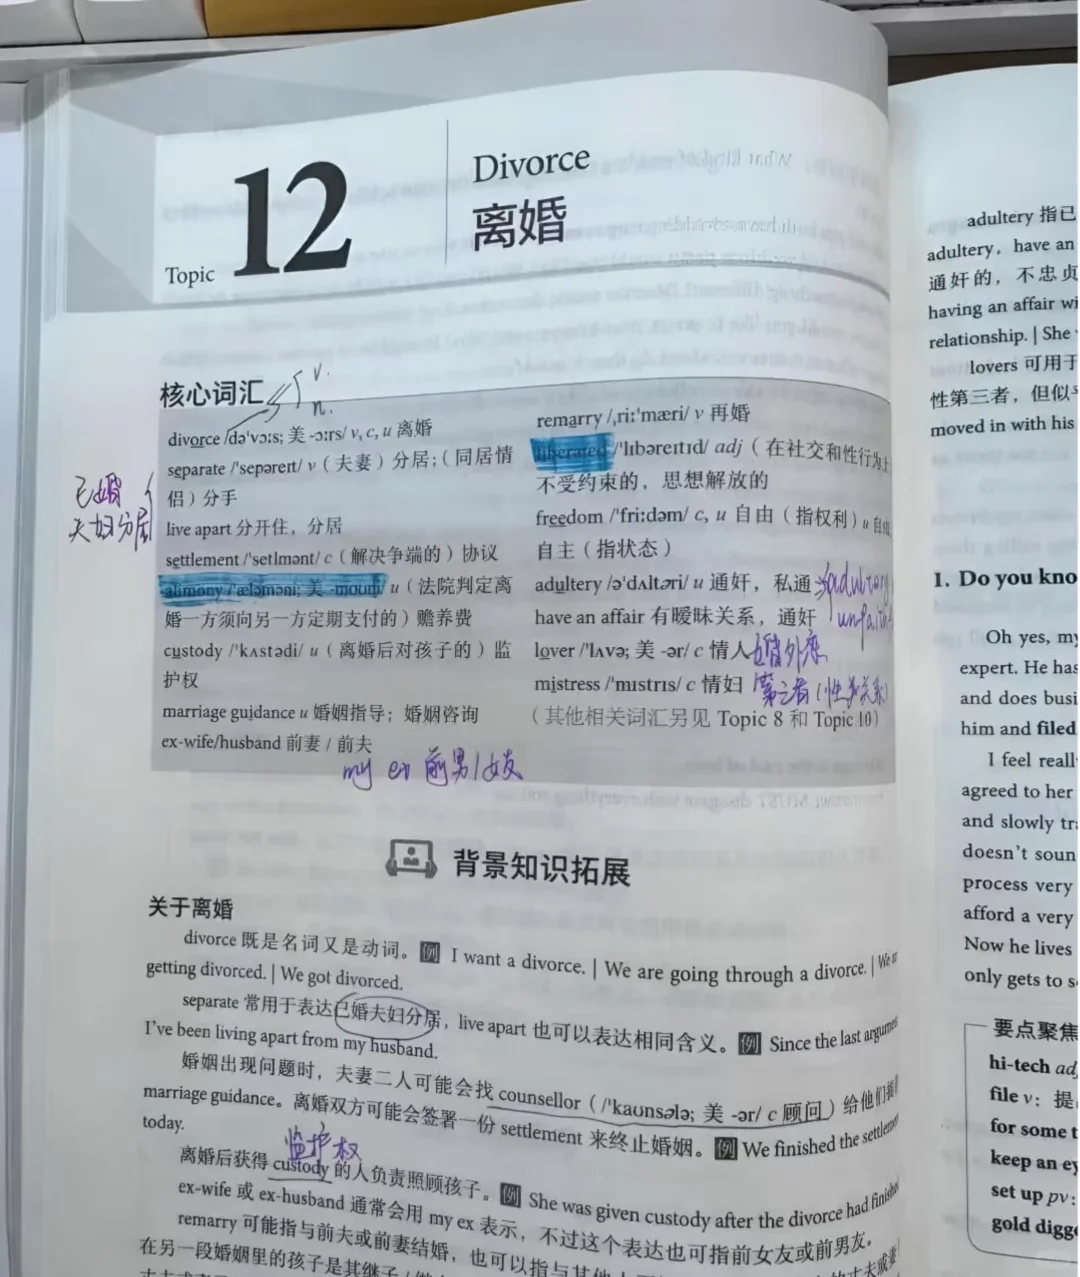 Topic 12
Divorce
离婚
核心词汇
v.
n.
divorce /də'vɔːs; 美 -ɔːrs/ v, c, u 离婚
separate /'sepəreɪt/ v（夫妻）分居；（同居情
侣）分手
live apart 分开住，分居
settlement /'setlmənt/ c（解决争端的）协议
alimony /'æləməni; 美 -moʊni/ u（法院判定离
婚一方须向另一方定期支付的）赡养费
custody /'kʌstədi/ u（离婚后对孩子的）监
护权
marriage guidance u 婚姻指导；婚姻咨询
ex-wife/husband 前妻 / 前夫
my ex 前男/女友
已婚
夫妇分居
remarry /ˌriː'mæri/ v 再婚
liberated /'lɪbəreɪtɪd/ adj（在社交和性行为上
不受约束的，思想解放的
freedom /'friːdəm/ c, u 自由（指权利）u 自由，
自主（指状态）
adultery /ə'dʌltəri/ u 通奸，私通
have an affair 有暧昧关系，通奸
lover /'lʌvə; 美 -ər/ c 情人 婚外恋
mistress /'mɪstrɪs/ c 情妇 第三者（性关系）
（其他相关词汇另见 Topic 8 和 Topic 10）
背景知识拓展
关于离婚
divorce 既是名词又是动词。例 I want a divorce. | We are going through a divorce. | We
getting divorced. | We got divorced.
separate 常用于表达已婚夫妇分居，live apart 也可以表达相同含义。例 Since the last argument
I've been living apart from my husband.
婚姻出现问题时，夫妻二人可能会找 counsellor（/'kaʊnsələ; 美 -ər/ c 顾问）给他们
marriage guidance。离婚双方可能会签署一份 settlement 来终止婚姻。例 We finished the settlement
today.
监护权
离婚后获得 custody 的人负责照顾孩子。例 She was given custody after the divorce had finished
ex-wife 或 ex-husband 通常会用 my ex 表示，不过这个表达也可指前女友或前男友。
remarry 可能指与前夫或前妻结婚，也可以指与其他
在另一段婚姻里的孩子是其继子
adultery 指已
adultery，have an
通奸的，不忠贞
having an affair wi
relationship. | She
lovers 可用于
性第三者，但似乎
moved in with his
1. Do you kno
Oh yes, my
expert. He has
and does busi
him and filed
I feel reall
agreed to her
and slowly tr
doesn't soun
process very
afford a very
Now he lives
only gets to s
要点聚焦
hi-tech adj
file v：提
for some t
keep an ey
set up pv：
gold digge